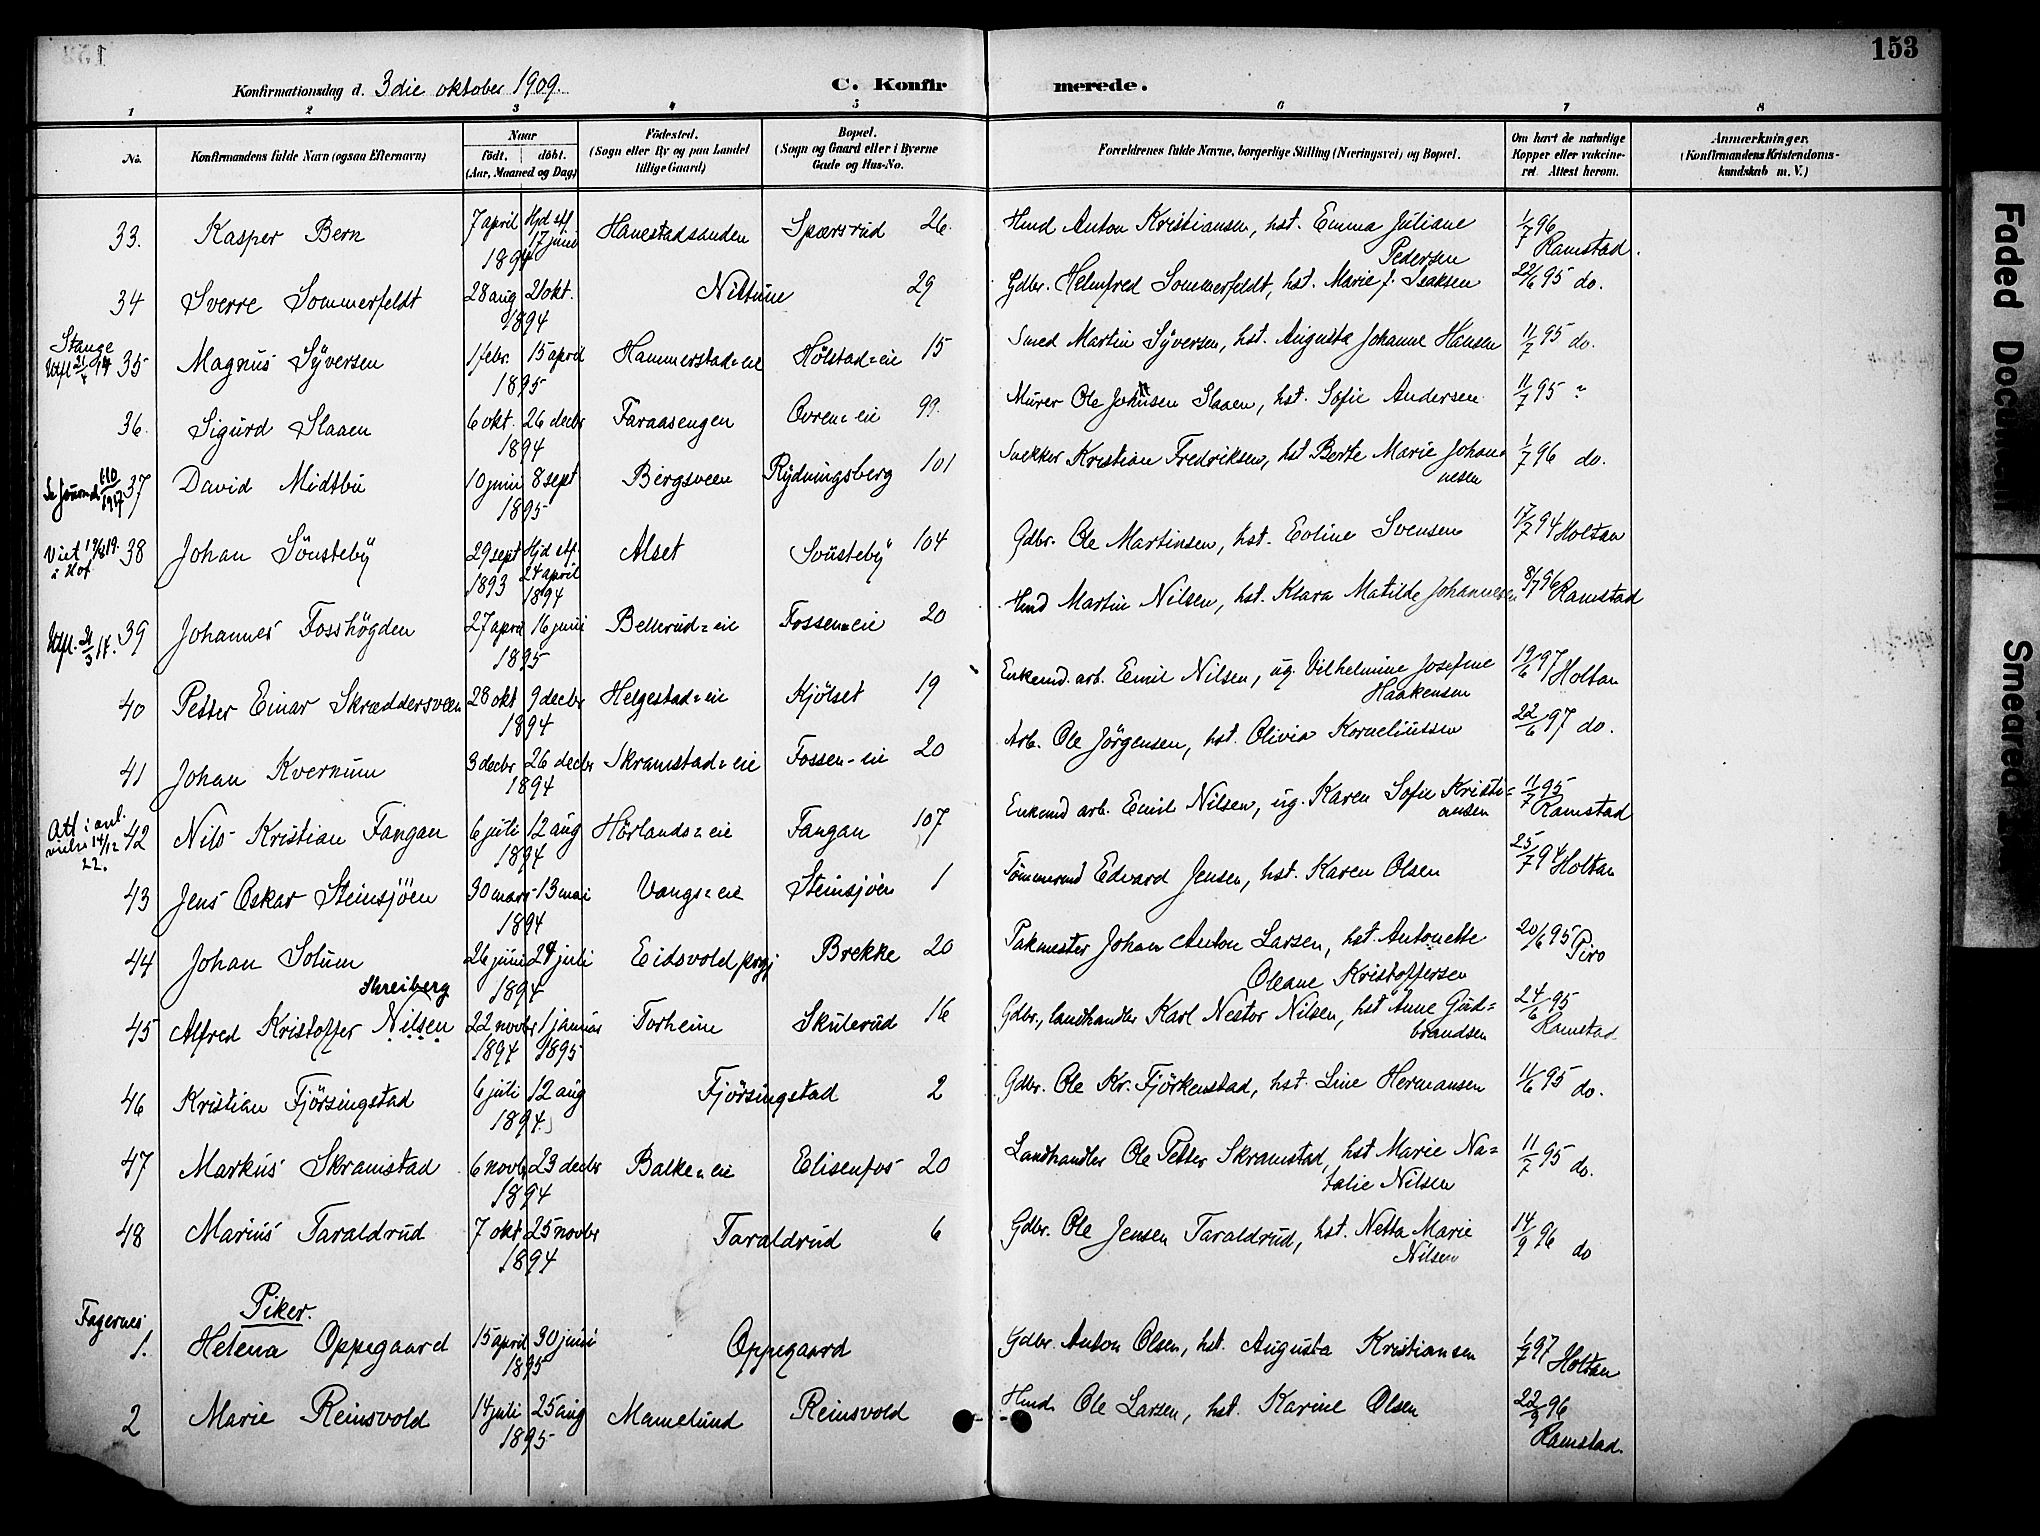 153
Konfirmationsdag d. 3die oktober 1909.
C. Konfirmerede.
1 2 3 4 5 6 7 8
No. Konfirmandens fulde Navn (ogsaa Efternavn) Naar födt. döbt. (Aar, Maaned og Dag) Födested. (Sogn eller By og paa Landet tillige Gaard) Bopæl. (Sogn og Gaard eller i Byerne Gade og Hus-No. Forældrenes fulde Navne, borgerlige Stilling (Næringsvei) og Bopæl. Om havt de naturlige Kopper eller vakcineret. Attest herom. Anmærkninger. (Konfirmandens Kristendomskundskab m. V.)
33. Kasper Bern 7 april Hjd stf. 17 juni 1894 Hanestadsanden Spærsrud 26. Hmd Anton Kristiansen, hst. Emma Juliane Pedersen 1/7 96 Ramstad.
34 Sverre Sommerfeldt 28 aug 21 okt. 1894 Nittune 29 Gdbr. Helmfred Sommerfeldt, hst. Marie f. Isaksen 22/6 95 do.
Stange
35 Magnus Syversen 1 febr. 15 april 1895 Hammerstad=eie Hölstad=eie 15 Smed Martin Syversen, hst. Augusta Johanne Hansen 11/7 95 do.
36. Sigurd Slaaen 6 okt. 26 decbr 1894 Faraasengen Ovren=eie 99. Murer Ole Johnsen Slaaen, hst. Sofie Andersen 11/7 95 "
37 David Midtbu 10 juni 8 sept 1895 Bergsveen Rydningsberg 101 Snekker Kristian Fredriksen, hst Berte Marie Johannesen 1/7 96 do.
38 Johan Sönsteby 29 sept 1893 Hjd stf. 24 april 1894 Alset Sönsteby 104 Gdbr. Ole Martinsen, hst. Eoline Svensen 17/7 94 Holtan
Utfl. 21/3 14. 39 Johannes Fosshögden 27 april 16 juni 1895 Bellerud=eie Fossen=eie 20 Hmd Martin Nilsen, hst. Klara Matilde Johannesen 8/7 96 Ramstad
40 Petter Einar Skræddersveen 28 okt 9 decbr 1894 Helgestad=eie Kjölset 19 Enkemd. arb. Emil Nilsen, ug. Vilhelmine Josefine Haakensen 19/6 97 Holtan
41 Johan Kvernum 3 decbr 26 decbr 1894 Skramstad=eie Fossen-eie 20 Arb. Ole Jörgensen, hst. Olivia Korneliussen 22/6 97 do.
Att: anl. vielse 14/12 22.
42 Nils Kristian Fangan 6 juli 12 aug 1894 Hörlands=eie Fangan 107 Enkemd arb. Emil Nilsen, ug. Karen Sofie Kristiansen 11/7 95 Ramstad
43 Jens Oskar Steinsjöen 30 mars 13 mai 1894 Vangs=eie Steinsjöen 1 Tömmermd Edvard Jensen, hst. Karen Olsen 25/7 94 Holtan
44 Johan Solum 26 juni 24 juli 1894 Eidsvold prgj Brekke 20 Pakmester Johan Anton Larsen, hst. Antonette Oleane Kristoffersen 20/6 95 Piro
Skreiberg
45 Alfred Kristoffer Nilsen 22 novbr 1894 1 januar 1895 Torheim Skulerud 16 Gdbr., landhandler Karl Nestor Nilsen, hst Anne Gudbrandsen 24/6 95 Ramstad
46 Kristian Fjörsingstad 6 juli 12 aug 1894. Fjörsingstad 2 Gdbr. Ole Kr. Fjörkenstad, hst. Line Hermansen 11/6 95 do.
47 Markus Skramstad 6 novbr 23 decbr 1894 Balke=eie Elisenfos 20 Landhandler Ole Petter Skramstad, hst Marie Natalie Nilsen 11/7 95 do.
48 Marius Taraldrud 7 okt 25 novbr 1894 Taraldrud 6 Gdbr. Ole Jensen Taraldrud, hst. Netta Marie Nilsen 14/9 96 do
Piker.
Fagernes
1. Helena Oppegaard 15 april 30 juni 1895 Oppegaard Gdbr. Anton Olsen, hst. Augusta Kristiansen 1/7 97 Holtan
2 Marie Reinsvold 14 juli 25 aug 1895 Mamelund Reinsvold Hmd. Ole Larsen, hst. Karine Olsen 22/9 96 Ramstad.
Faded Document
Smeared